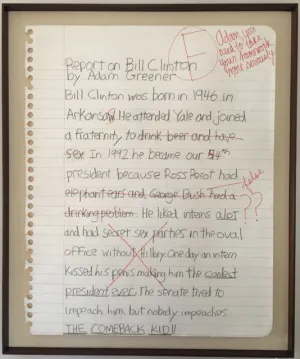 Report on Bill Clinton
by Adam Greener
Adam you
need to take
your homework
more seriously
Bill Clinton was born in 1946 in
Arkansas. He attended Yale and joined
a fraternity to drink beer and have
sex In 1992 he became our 54th
president because Ross Perot had
elephant ears and George Bush had a
drinking problem. He liked interns alot
false
??
and had secret sex parties in the oval
office without Hillary. One day an intern
kissed his penis making him the coolest
president ever. The senate tired to
impeach him but nobody impeaches
THE COMEBACK KID!!